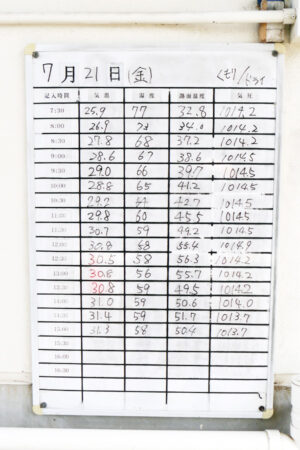 7月21日(金) くもり/ドライ
記入時間 気温 湿度 路面温度 気圧
7:30 25.9 77 32.8 1014.2
8:00 26.9 73 34.0 1014.2
8:30 27.8 68 37.2 1014.2
9:00 28.6 67 38.6 1014.5
9:30 29.0 66 39.7 1014.5
10:00 28.8 65 41.2 1014.5
10:30 29.2 42.7 1014.5
11:00 29.8 60 45.5 1014.5
11:30 30.7 59 49.2 1014.5
12:00 30.8 58 55.4 1014.9
12:30 30.5 58 56.3 1014.2
13:00 30.8 56 55.7 1014.2
13:30 30.8 59 49.5 1014.2
14:00 31.0 59 50.6 1014.0
14:30 31.4 59 51.7 1013.7
15:00 31.3 58 50.4 1013.7
15:30
16:00
16:30